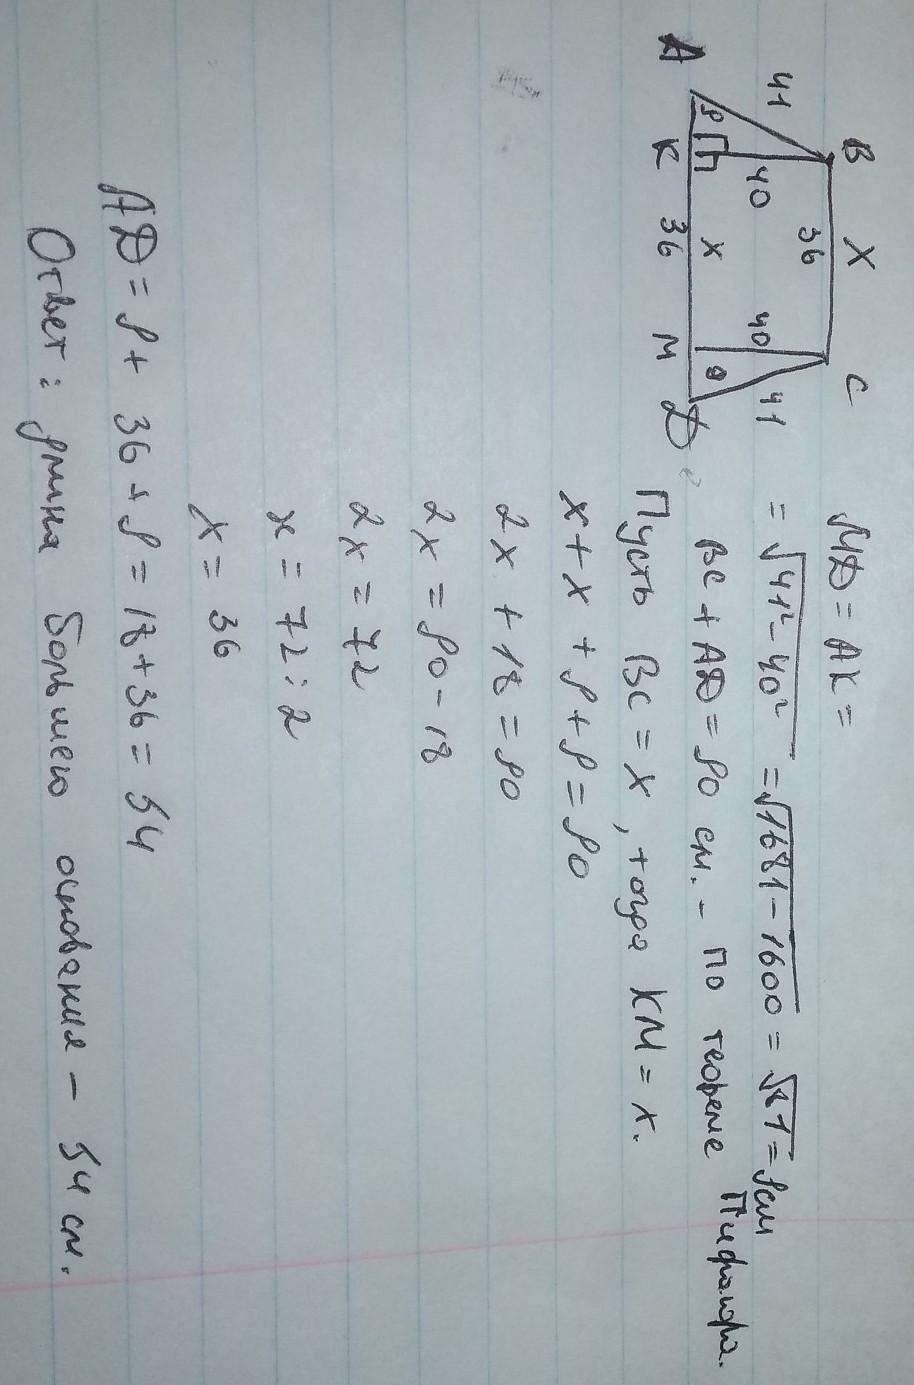 B X C
41 36 41
40 40
9 x 9
A K 36 M D
MD = AK =
= √41² - 40² = √1681 - 1600 = √81 = 9см
BC + AD = 90 см. - по теореме Пифагора.
Пусть BC = x, тогда KM = x.
x + x + 9 + 9 = 90
2x + 18 = 90
2x = 90 - 18
2x = 72
x = 72 : 2
x = 36
AD = 9 + 36 + 9 = 18 + 36 = 54
Ответ: длина большего основания - 54 см.